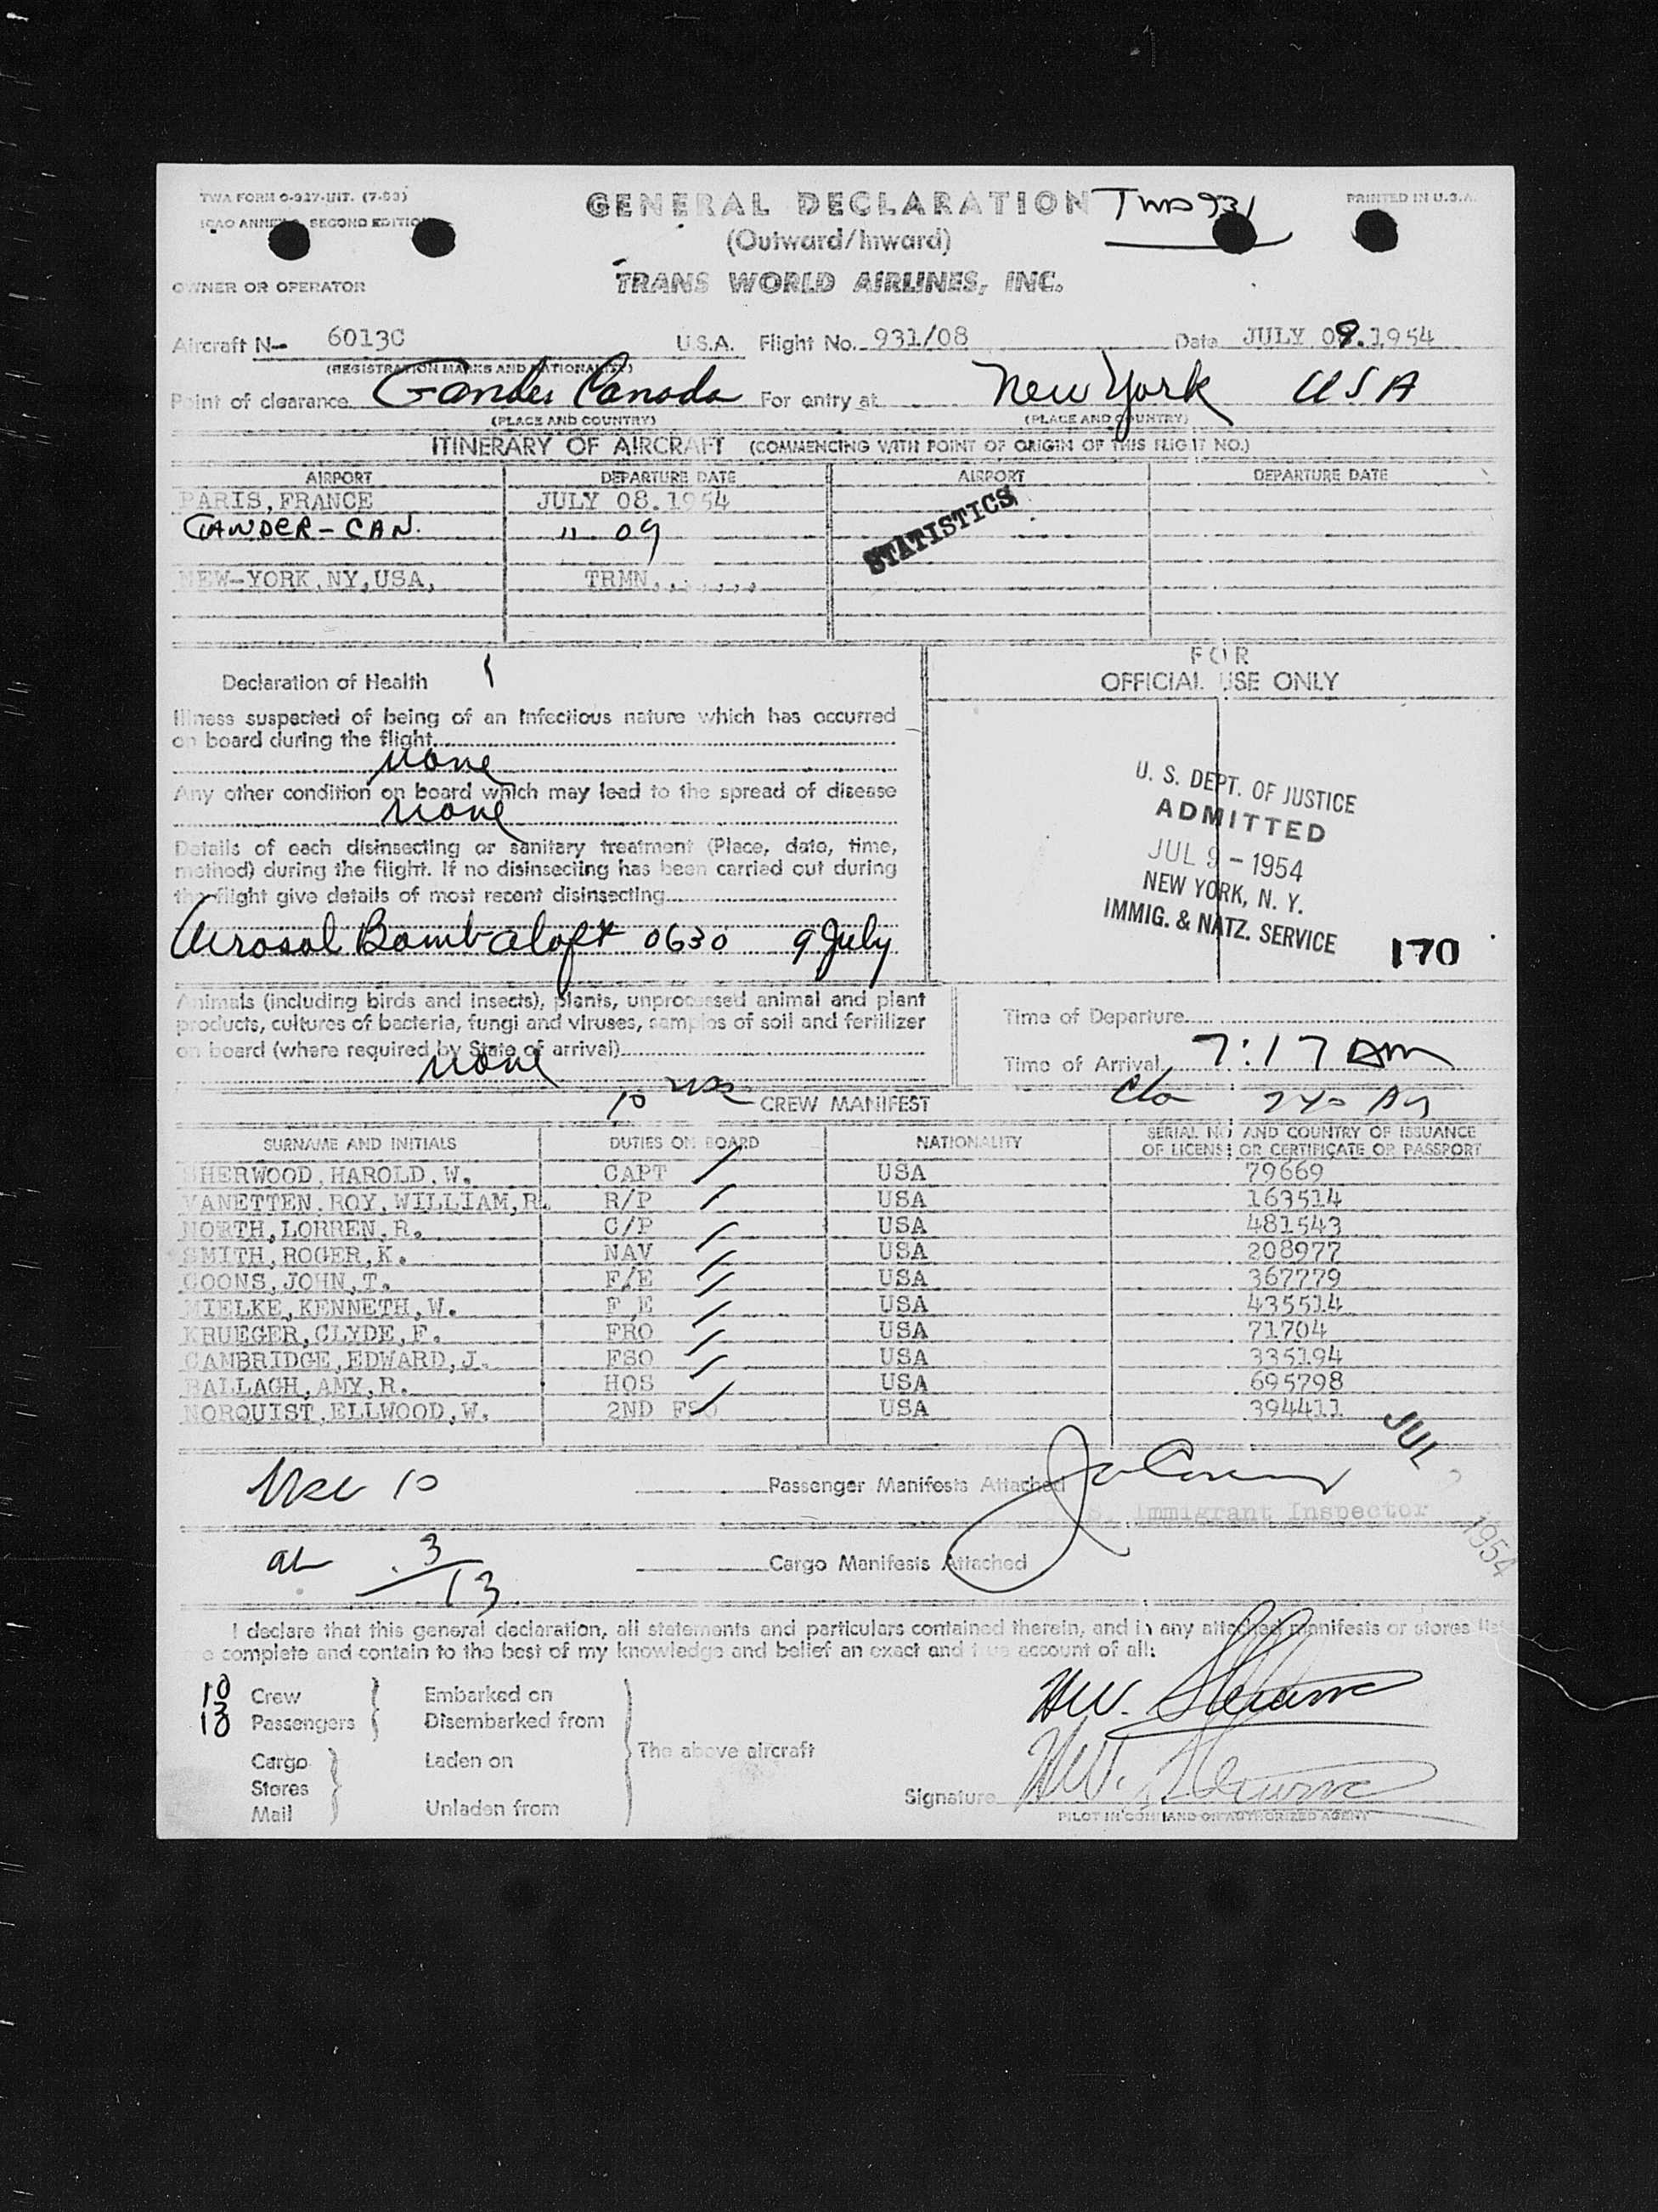 TWA FORM O-927-INT. (7-53)
ICAO ANNEX 9, SECOND EDITION
GENERAL DECLARATION TWA 931
PRINTED IN U.S.A.
(Outward/Inward)
OWNER OR OPERATOR TRANS WORLD AIRLINES, INC.
Aircraft N- 6013C U.S.A. Flight No. 931/08 Date JULY 09.1954
(REGISTRATION MARKS AND NATIONALITY)
Point of clearance Gander Canada For entry at New York USA
(PLACE AND COUNTRY) (PLACE AND COUNTRY)
ITINERARY OF AIRCRAFT (COMMENCING WITH POINT OF ORIGIN OF THIS FLIGHT NO.)
AIRPORT DEPARTURE DATE AIRPORT DEPARTURE DATE
PARIS,FRANCE JULY 08.1954
GANDER-CAN. " 09
STATISTICS
NEW-YORK,NY,USA, TRMN.,.,.,.,
Declaration of Health
Illness suspected of being of an infectious nature which has occurred
on board during the flight
none
Any other condition on board which may lead to the spread of disease
none
Details of each disinsecting or sanitary treatment (Place, date, time,
method) during the flight. If no disinsecting has been carried out during
the flight give details of most recent disinsecting
Aerosol Bomb aloft 0630 9 July
FOR
OFFICIAL USE ONLY
U. S. DEPT. OF JUSTICE
ADMITTED
JUL 9 - 1954
NEW YORK, N. Y.
IMMIG. & NATZ. SERVICE
170
Animals (including birds and insects), plants, unprocessed animal and plant
products, cultures of bacteria, fungi and viruses, samples of soil and fertilizer
on board (where required by State of arrival)
none
Time of Departure
Time of Arrival 7:17 AM
10 CREW MANIFEST
SURNAME AND INITIALS DUTIES ON BOARD NATIONALITY SERIAL NO. AND COUNTRY OF ISSUANCE
OF LICENSE OR CERTIFICATE OR PASSPORT
SHERWOOD,HAROLD,W. CAPT USA 79669
VANETTEN,ROY,WILLIAM,R. R/P USA 163514
NORTH,LORREN,R. C/P USA 481543
SMITH,ROGER,K. NAV USA 208977
COONS,JOHN,T. F/E USA 367779
MIELKE,KENNETH,W. F E USA 435514
KRUEGER,CLYDE,F. FRO USA 71704
CAMBRIDGE,EDWARD,J. FSO USA 335194
BALLAGH,AMY,R. HOS USA 695798
NORQUIST,ELLWOOD,W. 2ND FSO USA 394411
JUL 9 1954
10 Passenger Manifests Attached
U.S. Immigrant Inspector
3/13 Cargo Manifests Attached
I declare that this general declaration, all statements and particulars contained therein, and in any attached manifests or stores list
are complete and contain to the best of my knowledge and belief an exact and true account of all:
10 Crew Embarked on
13 Passengers Disembarked from
The above aircraft
Cargo Laden on
Stores
Mail Unladen from
Signature
PILOT IN COMMAND OR AUTHORIZED AGENT